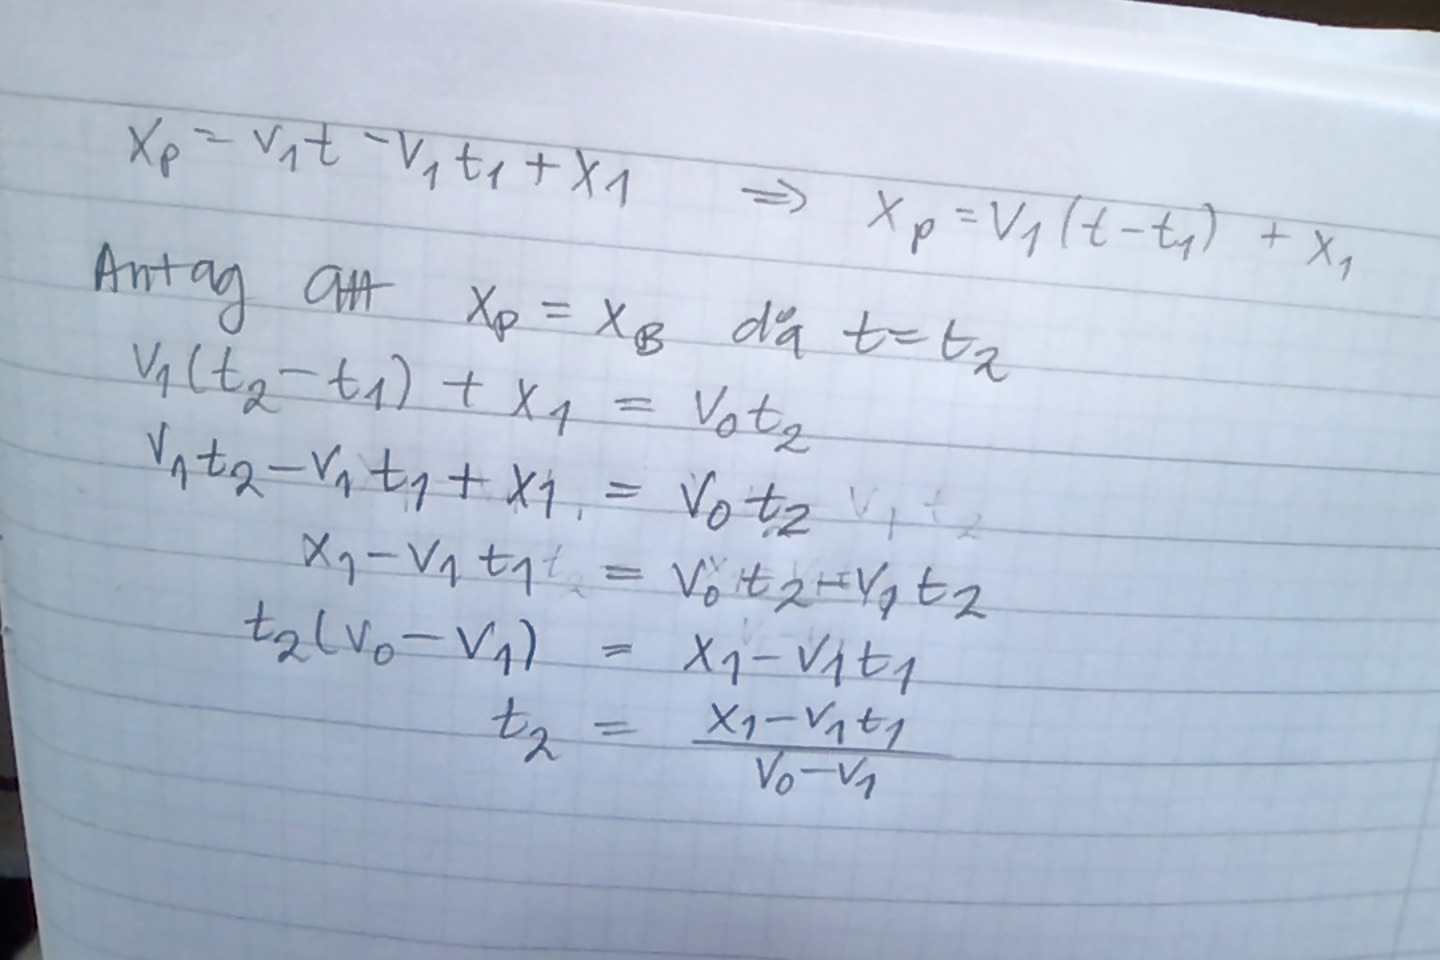 x_p = v_1 t - v_1 t_1 + x_1 ⇒ x_p = v_1 (t - t_1) + x_1
Antag att x_p = x_B då t = t_2
v_1 (t_2 - t_1) + x_1 = v_0 t_2
v_1 t_2 - v_1 t_1 + x_1 = v_0 t_2
x_1 - v_1 t_1 = v_0 t_2 - v_1 t_2
t_2 (v_0 - v_1) = x_1 - v_1 t_1
t_2 = \frac{x_1 - v_1 t_1}{v_0 - v_1}